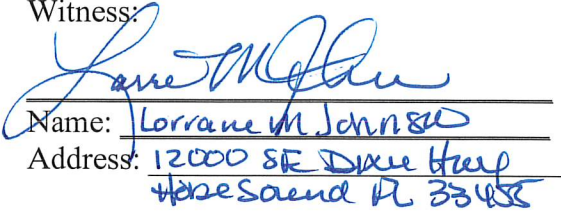 Witness:
Name: Lorraine M Johnson
Address: 12000 SE Dixie Hwy
Hobe Sound FL 33455